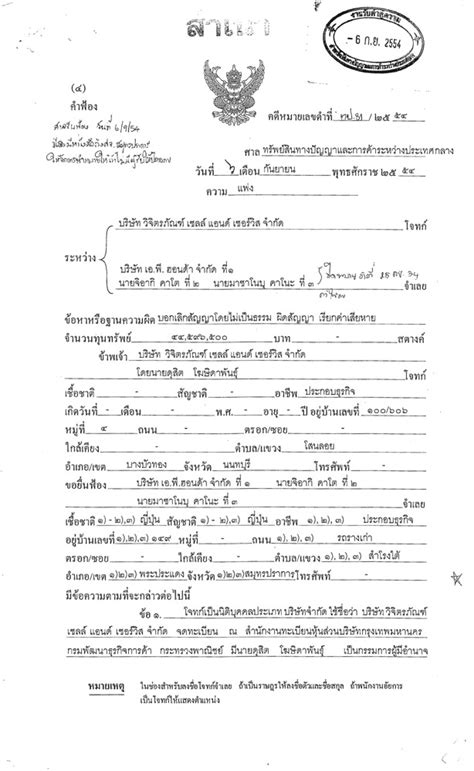 สำเนา
รายวันคำคู่ความ
- 6 ก.ย. 2554
(๔)
คำฟ้อง
คดีหมายเลขดำที่ / ๒๕ ๕๔
ศาล ทรัพย์สินทางปัญญาและการค้าระหว่างประเทศกลาง
วันที่ ๖ เดือน กันยายน พุทธศักราช ๒๕ ๕๔
ความ แพ่ง
บริษัท วิจิตรภัณฑ์ เซลล์ แอนด์ เซอร์วิส จำกัด โจทก์
ระหว่าง
บริษัท เอ.พี. ฮอนด้า จำกัด ที่๑
นายจิอากิ คาโต ที่ ๒ นายมาซาโนบุ คาโนะ ที่ ๓ จำเลย
ข้อหาหรือฐานความผิด บอกเลิกสัญญาโดยไม่เป็นธรรม ผิดสัญญา เรียกค่าเสียหาย
จำนวนทุนทรัพย์ ๔๔,๕๙๖,๕๐๐ บาท - สตางค์
ข้าพเจ้า บริษัท วิจิตรภัณฑ์ เซลล์ แอนด์ เซอร์วิส จำกัด
โดยนายดุสิต โฆษิตาพันธุ์ โจทก์
เชื้อชาติ - สัญชาติ - อาชีพ ประกอบธุรกิจ
เกิดวันที่ - เดือน - พ.ศ. - อายุ - ปี อยู่บ้านเลขที่ ๑๐๐/๖๐๖
หมู่ที่ ๔ ถนน - ตรอก/ซอย -
ใกล้เคียง - ตำบล/แขวง โสนลอย
อำเภอ/เขต บางบัวทอง จังหวัด นนทบุรี โทรศัพท์ -
ขอยื่นฟ้อง บริษัท เอ.พี.ฮอนด้า จำกัด ที่ ๑ นายจิอากิ คาโต ที่ ๒
นายมาซาโนบุ คาโนะ ที่ ๓ จำเลย
เชื้อชาติ ๑) - ๒),๓) ญี่ปุ่น สัญชาติ ๑) - ๒),๓) ญี่ปุ่น อาชีพ ๑), ๒), ๓) ประกอบธุรกิจ
อยู่บ้านเลขที่ ๑),๒),๓) ๑๔๙ หมู่ที่ - ถนน ๑), ๒), ๓) รถรางเก่า
ตรอก/ซอย - ใกล้เคียง - ตำบล/แขวง ๑), ๒), ๓) สำโรงใต้
อำเภอ/เขต ๑)๒)๓) พระประแดง จังหวัด ๑)๒)๓)สมุทรปราการ โทรศัพท์ -
มีข้อความตามที่จะกล่าวต่อไปนี้
ข้อ ๑. โจทก์เป็นนิติบุคคลประเภท บริษัทจำกัด ใช้ชื่อว่า บริษัท วิจิตรภัณฑ์
เซลล์ แอนด์ เซอร์วิส จำกัด จดทะเบียน ณ สำนักงานทะเบียนหุ้นส่วนบริษัทกรุงเทพมหานคร
กรมพัฒนาธุรกิจการค้า กระทรวงพาณิชย์ มีนายดุสิต โฆษิตาพันธุ์ เป็นกรรมการผู้มีอำนาจ
หมายเหตุ ในช่องสำหรับลงชื่อโจทก์จำเลย ถ้าเป็นราษฎรให้ลงชื่อตัวและชื่อสกุล ถ้าพนักงานอัยการ
เป็นโจทก์ให้แสดงตำแหน่ง